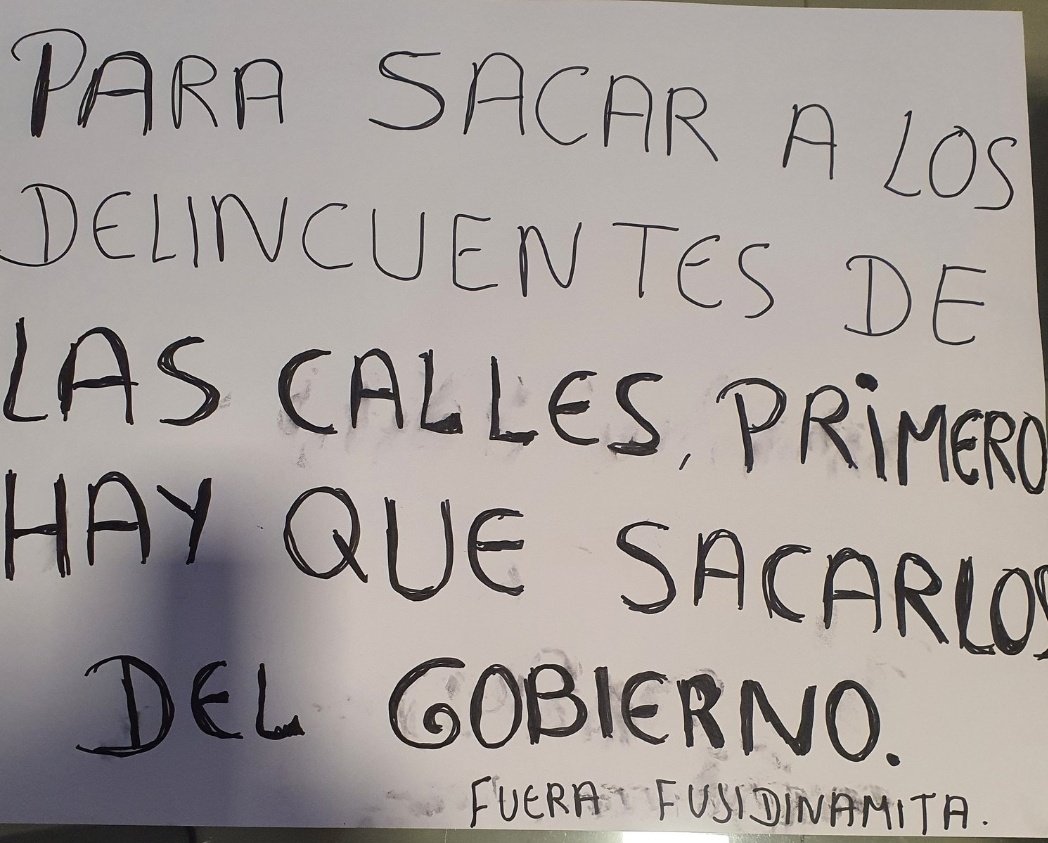 PARA SACAR A LOS
DELINCUENTES DE
LAS CALLES, PRIMERO
HAY QUE SACARLOS
DEL GOBIERNO.
FUERA FUSIDINAMITA.